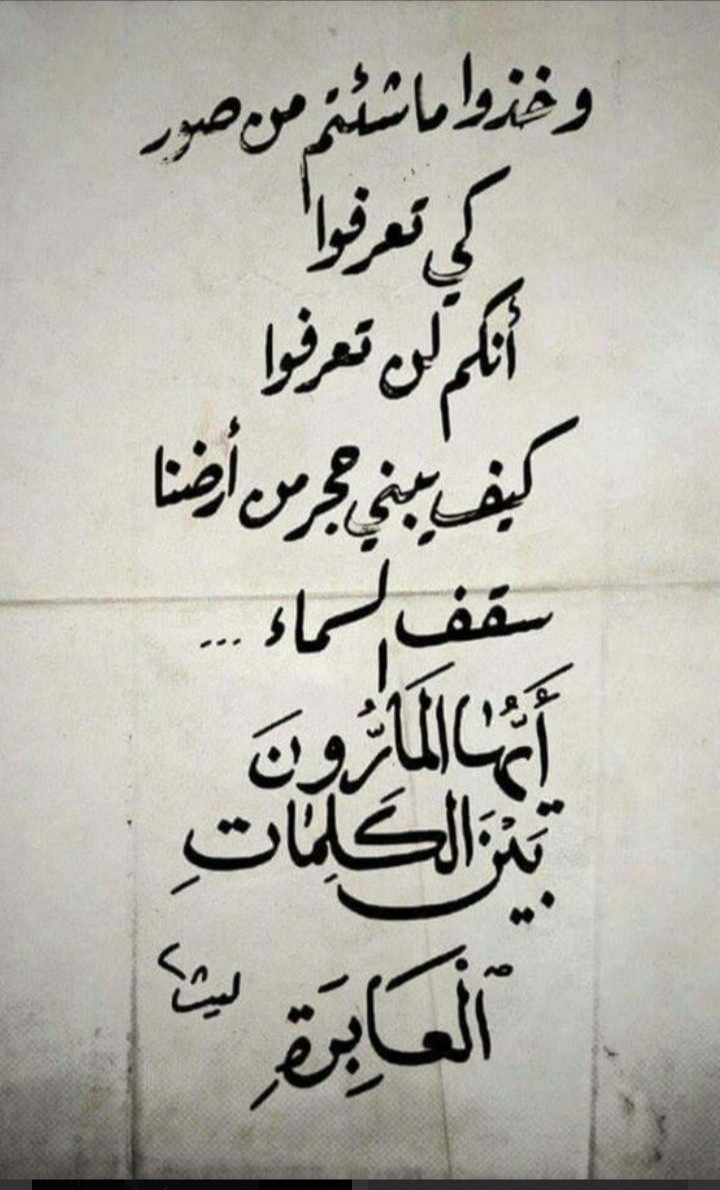 وخذوا ما شئتم من صور
كي تعرفوا
أنكم لن تعرفوا
كيف يبني حجر من أرضنا
سقف السماء ...
أَيُّهَا المَارُّونَ
بَيْنَ الكَلِمَاتِ
ٱلْعَابِرَةِ
ليث